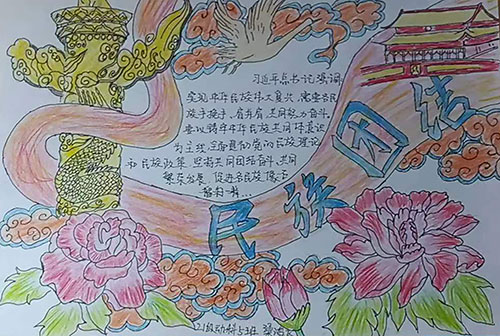 习近平总书记强调
实现中华民族伟大复兴，需要各民
族手挽手、肩并肩、共同努力奋斗，
要以铸牢中华民族共同体意识
为主线，全面贯彻党的民族理论
和民族政策，坚持共同团结奋斗、共同
繁荣发展，促进各民族像石
榴籽一样…
民族团结
21级动科5班